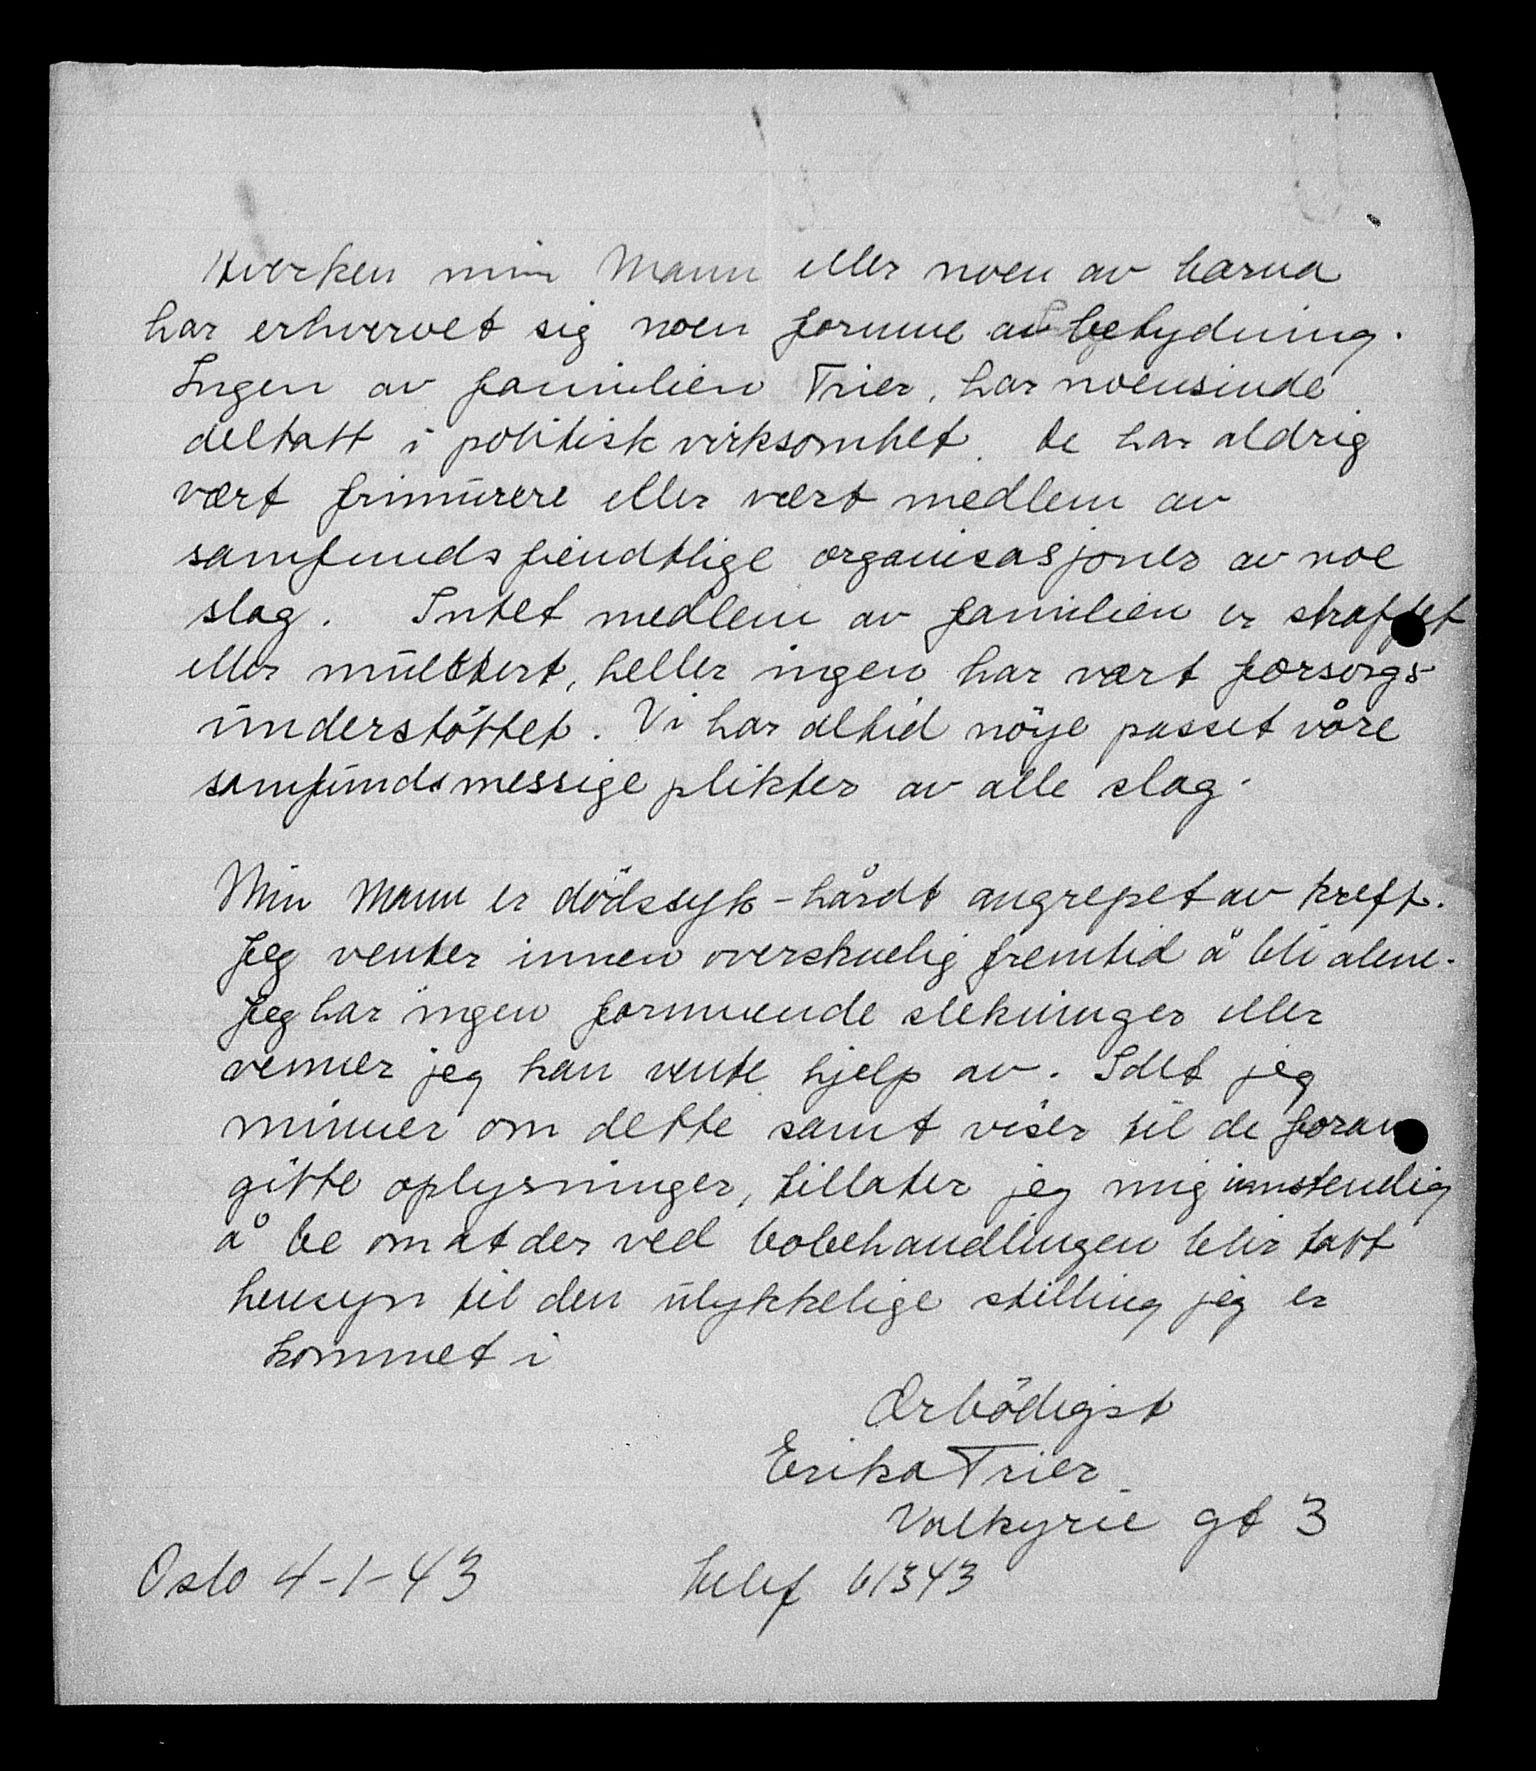 Hverken min Mann eller noen av barna
har erhvervet sig noen formue av betydning.
Ingen av familien Trier, har noensinde
deltatt i politisk virksomhet. De har aldrig
vært frimürere eller vært medlem av
samfundsfiendtlige organisasjoner av noe
slag. Intet medlem av familien er straffet
eller mülktert, heller ingen har vært forsorgs-
ünderstöttet. Vi har altid nöye passet våre
samfündsmessige plikter av alle slag.
Min Mann er dödssyk - hårdt angrepet av kreft.
Jeg venter innen overskuelig fremtid å bli alene.
Jeg har ingen formuende slektninger eller
venner jeg kan vente hjelp av. Idet jeg
minner om dette samt viser til de foran
gitte oplysninger, tillater jeg mig innstendig
å be om at der ved bobehandlingen blir tatt
hensyn til den ulykkelige stilling jeg er
kommet i
Ærbödigst
Erika Trier
Valkyrie gt 3
Oslo 4-1-43 telef 61343